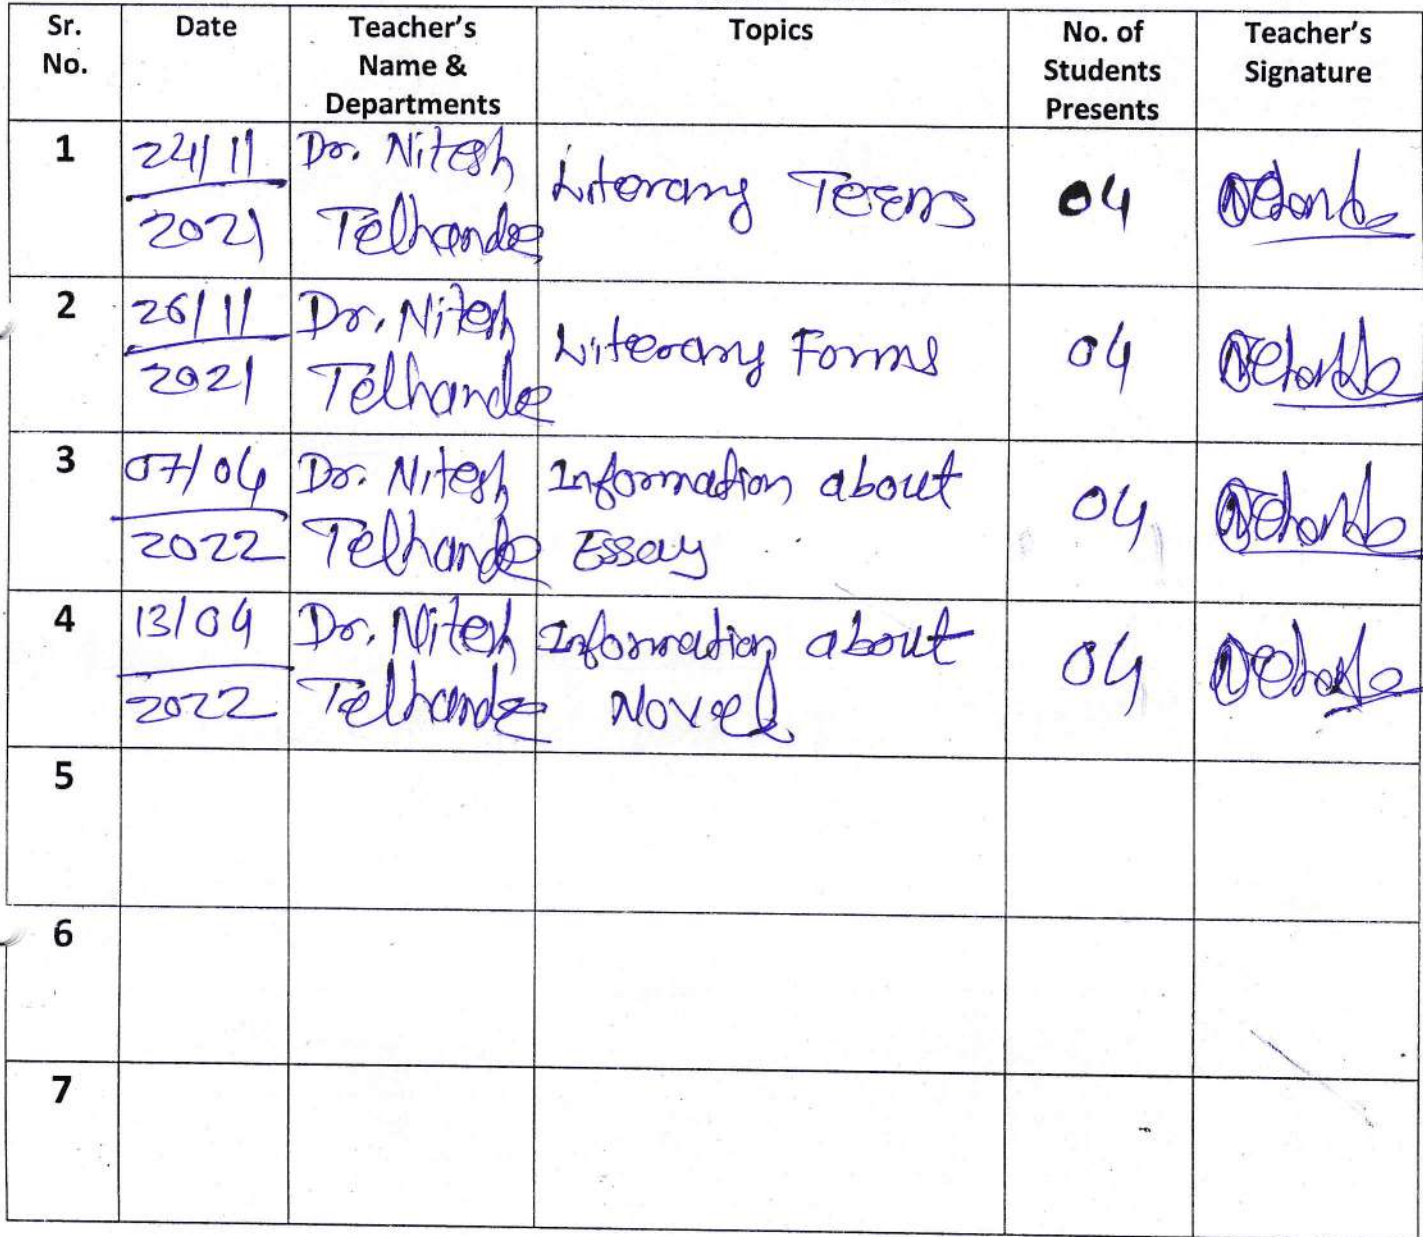 Sr. No. Date Teacher's Name & Departments Topics No. of Students Presents Teacher's Signature
1 24/11 2021 Dr. Nitesh Telhande Literary Terms 04
2 26/11 2021 Dr. Nitesh Telhande Literary Forms 04
3 07/04 2022 Dr. Nitesh Telhande Information about Essay 04
4 13/04 2022 Dr. Nitesh Telhande Information about Novel 04
5
6
7